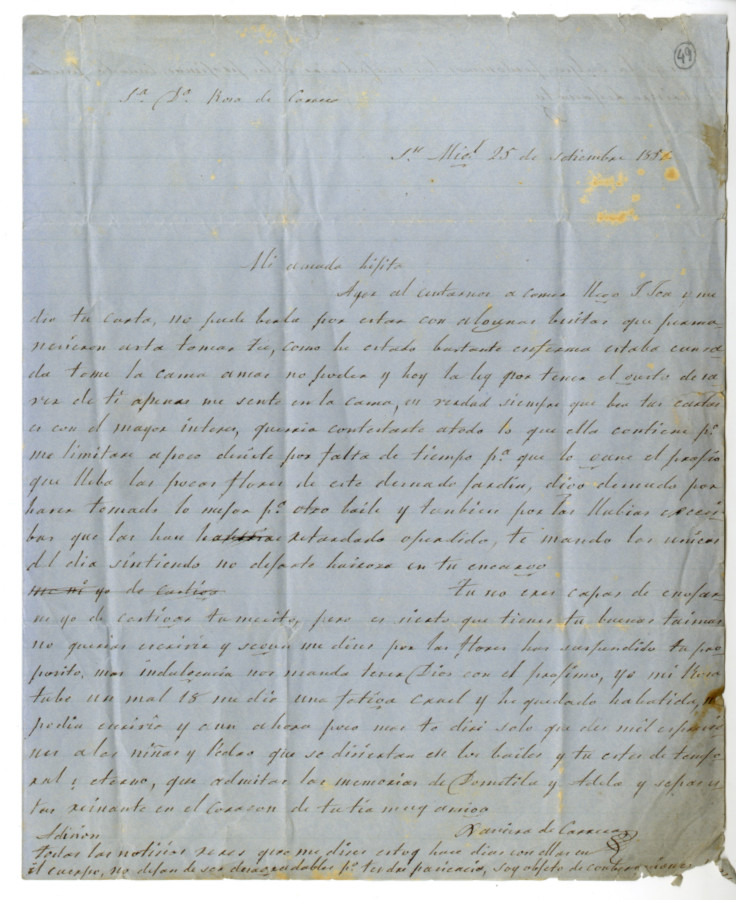 49
Sª Dª Rosa de
Sⁿ Migˡ 25 de setiembre 185
Mi amada hijita
Ayer al sentarnos a comer llego T Jca i me
dio tu carta, no pude berla por estar con algunas bisitas que perma
necieron asta tomar te, como he estado bastante enferma estaba cansa
da tome la cama a mas no poder y hoy la ley por tener el gusto de sa
ver de ti apenas me sente en la cama, en verdad siempre que leo tus cartas
es con el mayor interes, queria contestarte atodo lo que ella contiene pº
me limitare apoco decirte por falta de tiempo pª que lo gane el profio
que lleba las pocas flores de este demado jardin, digo demado por
haver tomado lo mejor pª otro baile y tanbien por las llubias ecsesi
bas que las han retardado operdido, te mando las unicas
del dia sintiendo no dejarte huirosa en tu encargo
me ni yo de castigo
tu no eres capas de enojar
ni yo de castigar tu merito, pero es sierto que tienes tu buenas taimas
no querias escrivir y segun me dices por las flores has suspendido tu pro
posito, mas indulgencia nos manda tener Dios con el profimo, yo mi Rosa
tube un mal 15 me dio una fatiga cruel y he quedado habatida, n
podia escrivir y aun ahora poco mas te dire solo que des mil espresio
nes a las niñas y Pedro que se diviertan en los bailes y tu estes de tempo
ral i eterno, que admitas las memorias de Domitila y Adela y sepas es
tas reinante en el corason de tu tia muy amiga
Javiera de Carrera
Adicion
todas las noticias que me dises estoy hace dias con ellas en
el cuerpo, no dejan de ser desagradables pº tendre paciencia, soy objeto de